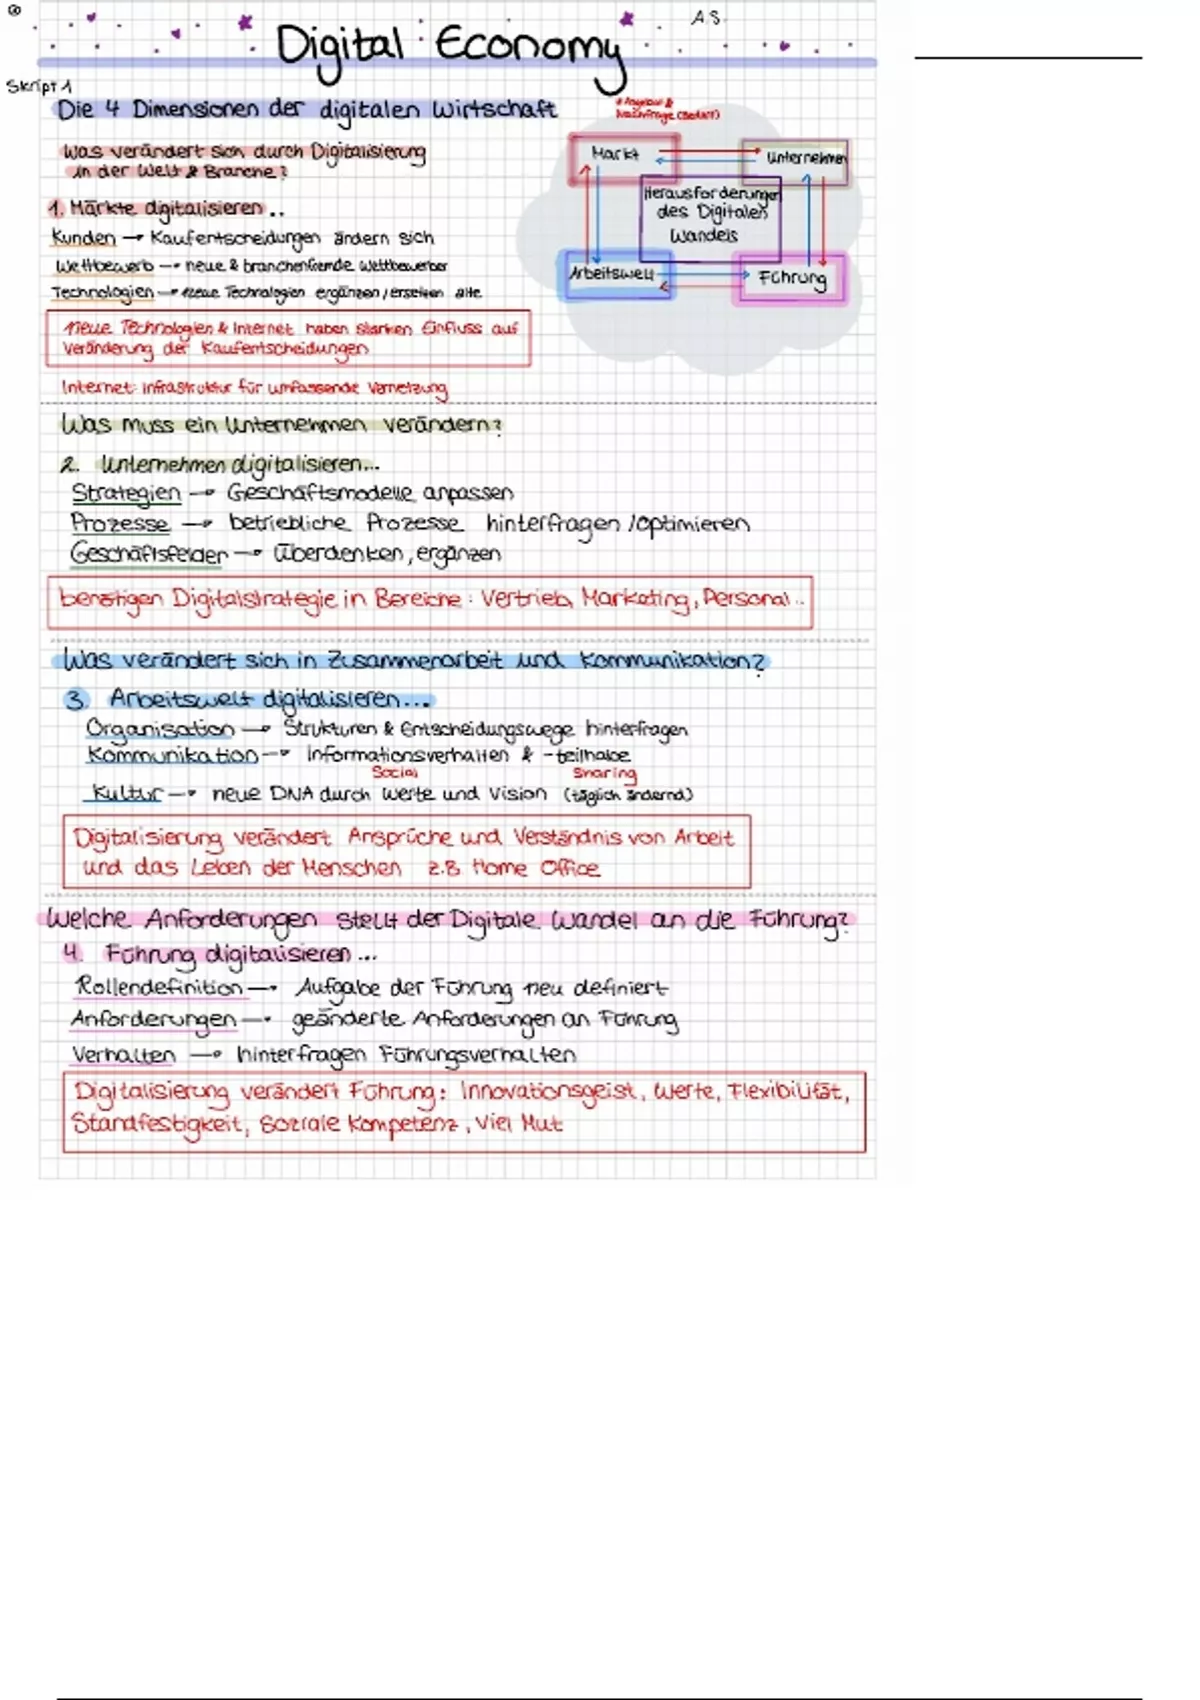 A.S.
Digital Economy
Skript 1
Die 4 Dimensionen der digitalen Wirtschaft
Was verändert sich durch Digitalisierung
in der Welt & Branche?
1. Märkte digitalisieren..
Kunden → Kaufentscheidungen ändern sich
Wettbewerb → neue & branchenfremde Wettbewerber
Technologien → neue Technologien ergänzen/ersetzen alte
neue Technologien & Internet haben starken Einfluss auf
Veränderung der Kaufentscheidungen
Internet: Infrastruktur für umfassende Vernetzung
Nachfrage (Bedarf)
Markt
Unternehmen
Herausforderungen
des Digitalen
Wandels
Arbeitswelt
Führung
Was muss ein Unternehmen verändern?
2. Unternehmen digitalisieren...
Strategien → Geschäftsmodelle anpassen
Prozesse → betriebliche Prozesse hinterfragen/optimieren
Geschäftsfelder → Überdenken, ergänzen
benötigen Digitalstrategie in Bereiche: Vertrieb, Marketing, Personal..
Was verändert sich in Zusammenarbeit und Kommunikation?
3. Arbeitswelt digitalisieren...
Organisation → Strukturen & Entscheidungswege hinterfragen
Kommunikation → Informationsverhalten & -teilhabe
Social Sharing
Kultur → neue DNA durch Werte und Vision (täglich ändernd)
Digitalisierung verändert Ansprüche und Verständnis von Arbeit
und das Leben der Menschen z.B. Home Office
Welche Anforderungen stellt der Digitale Wandel an die Führung?
4. Führung digitalisieren...
Rollendefinition → Aufgabe der Führung neu definiert
Anforderungen → geänderte Anforderungen an Führung
Verhalten → hinterfragen Führungsverhalten
Digitalisierung verändert Führung: Innovationsgeist, Werte, Flexibilität,
Standfestigkeit, Soziale Kompetenz, Viel Mut